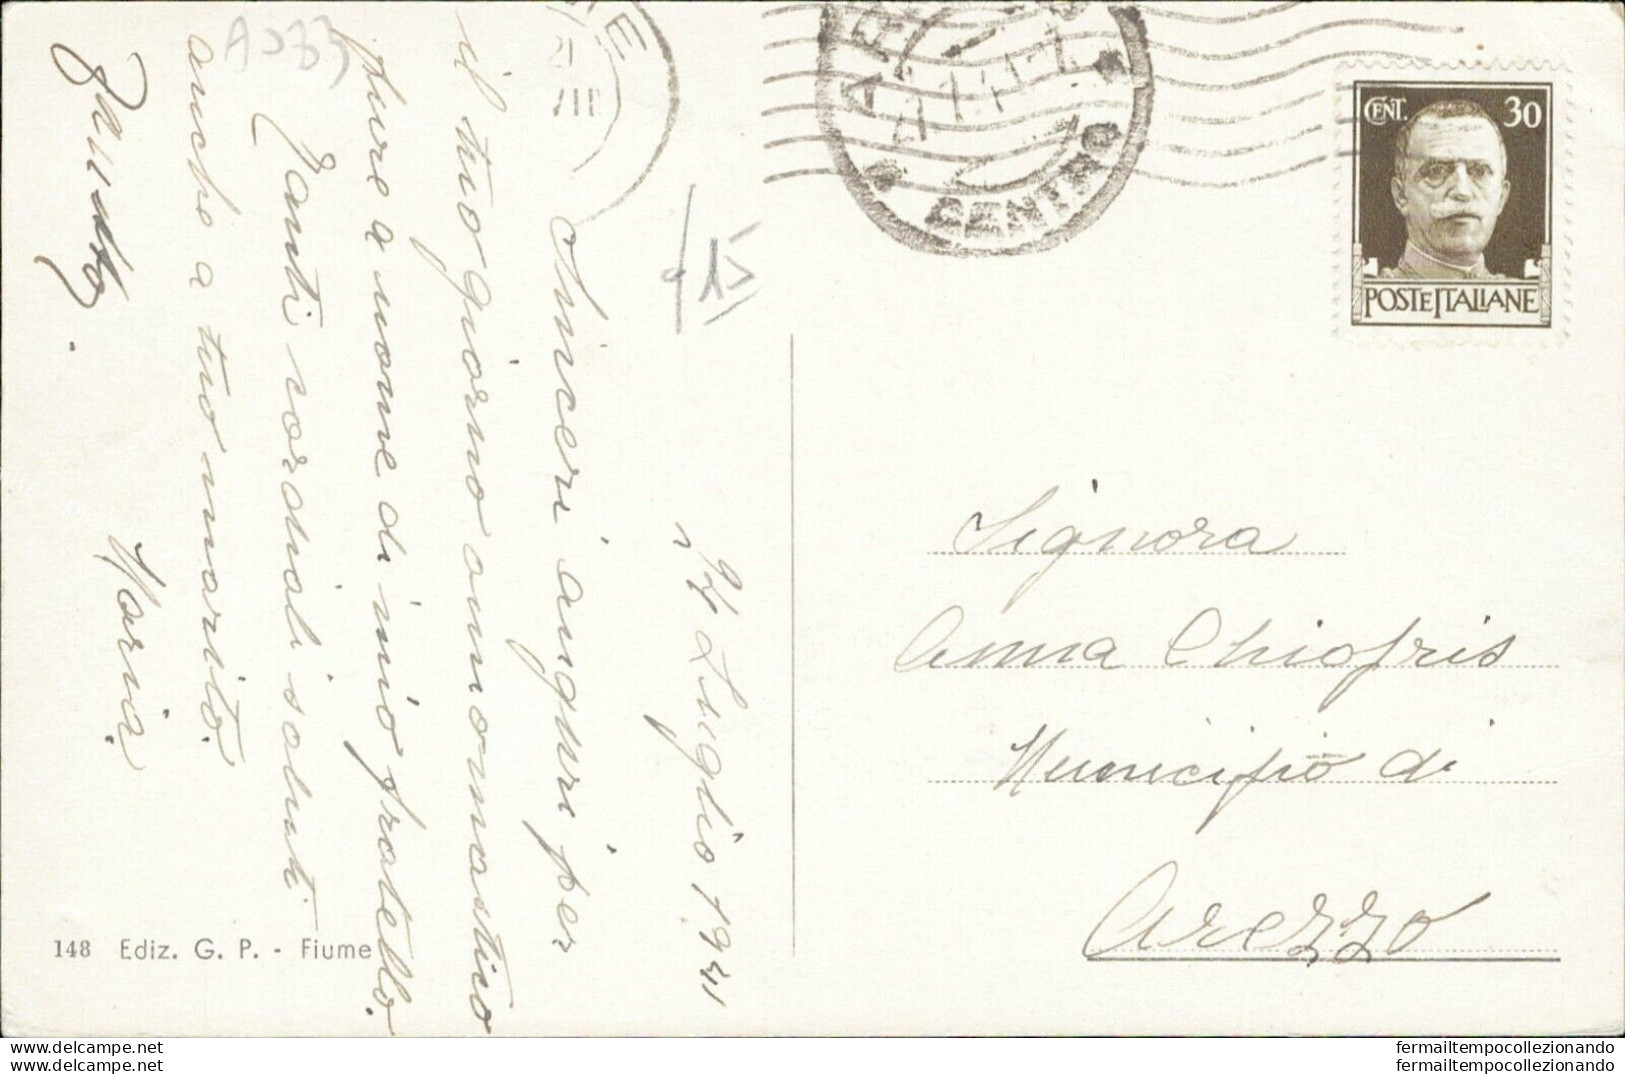 24 Luglio 1941
Sinceri auguri per
il tuo giorno onomastico
pure a nome di mio fratello.
Tanti cordiali saluti
anche a tuo marito.
Maria
A533
£ 15
148 Ediz. G. P. - Fiume
CENTRO
CENT. 30
POSTE ITALIANE
Signora
Anna Chiofris
Municipio di
Arezzo
www.delcampe.net
fermailtempocollezionando
fermailtempocollezionando